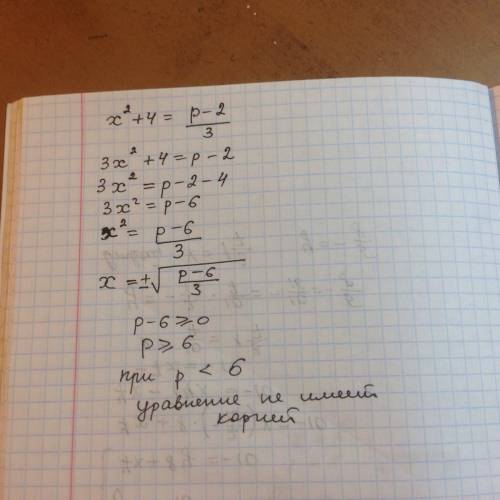 x² + 4 = (p-2)/3
3x² + 4 = p - 2
3x² = p - 2 - 4
3x² = p - 6
x² = (p-6)/3
x = ±√((p-6)/3)
p - 6 ⩾ 0
p ⩾ 6
при p < 6
уравнение не имеет
корней